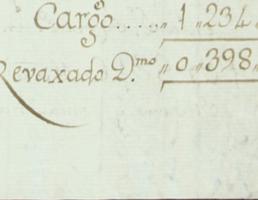 Cargo.....,, 1 ,, 234 ,,
Revaxado D.mo ,, 0 ,, 398 ,,